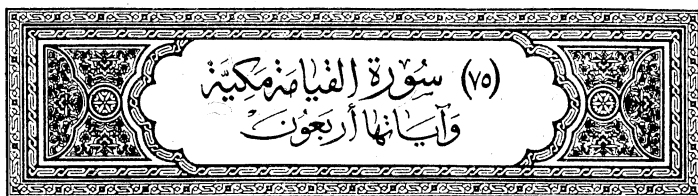 (٧٥) سُورَة القيَامَة مَكيَّة
وَآيَاتها أربَعُون